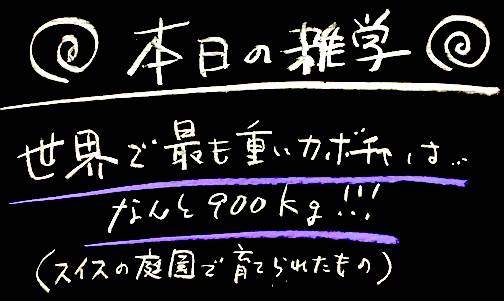 本日の雑学
世界で最も重いカボチャは…
なんと900kg!!!
(スイスの庭園で育てられたもの)